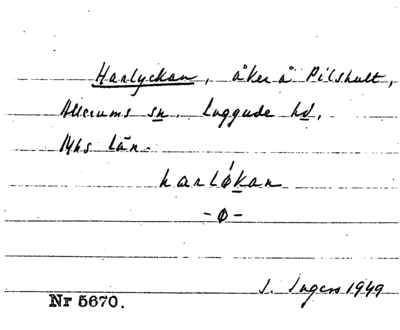 Harlyckan, åker å Pilshult,
Allerums sn. Luggude hd.
Mhs län.
harlökan
-ö-
J. Ingers 1949
Nr 5670.